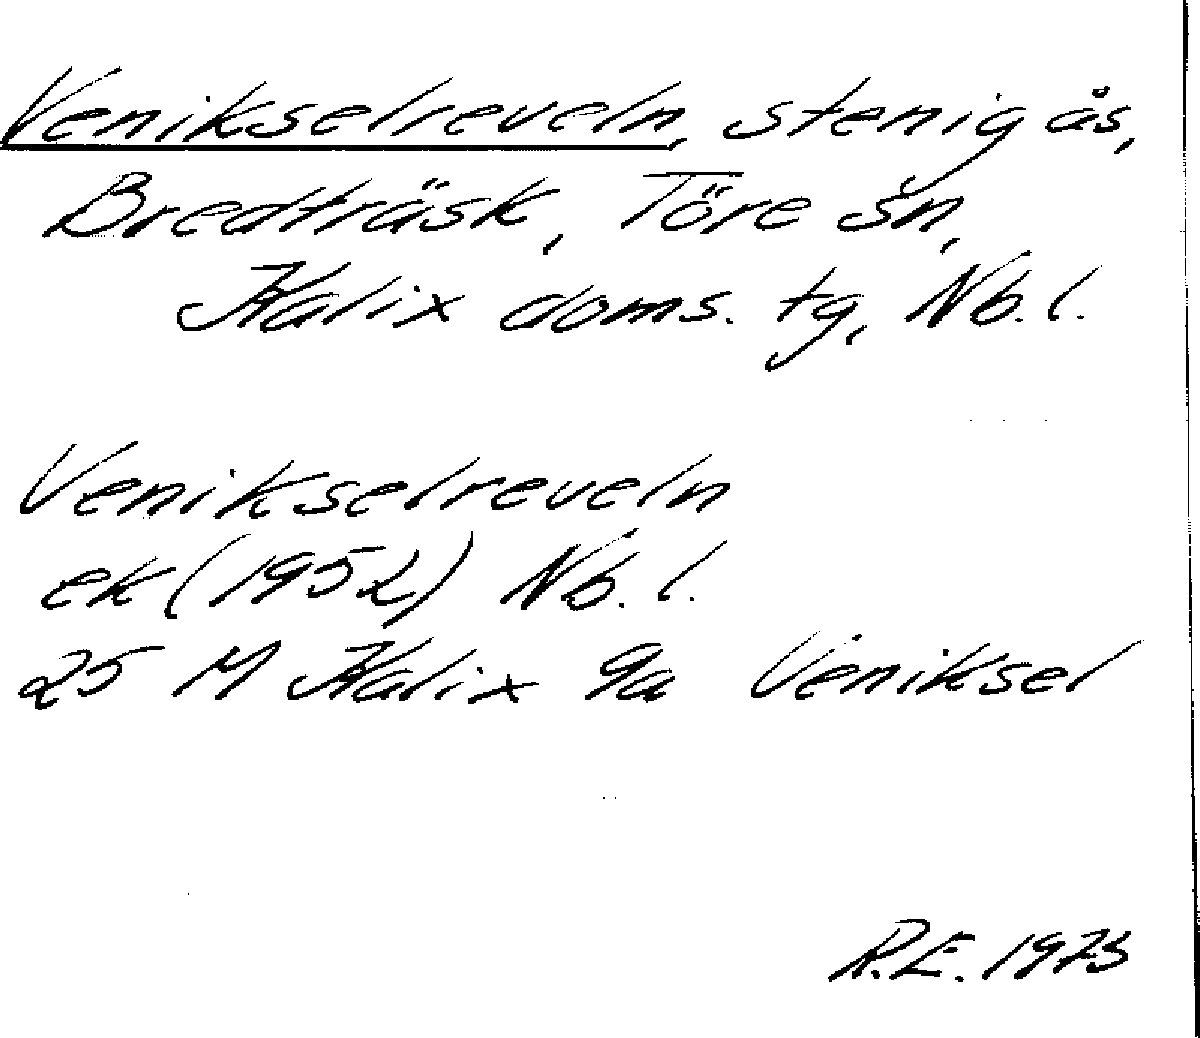 Venikselreveln, stenig ås,
Bredträsk, Töre sn,
Kalix doms. tg, Nb. l.
Venikselreveln
ek (1952) Nb. l.
25 M Kalix 9a Veniksel
R.E. 1973